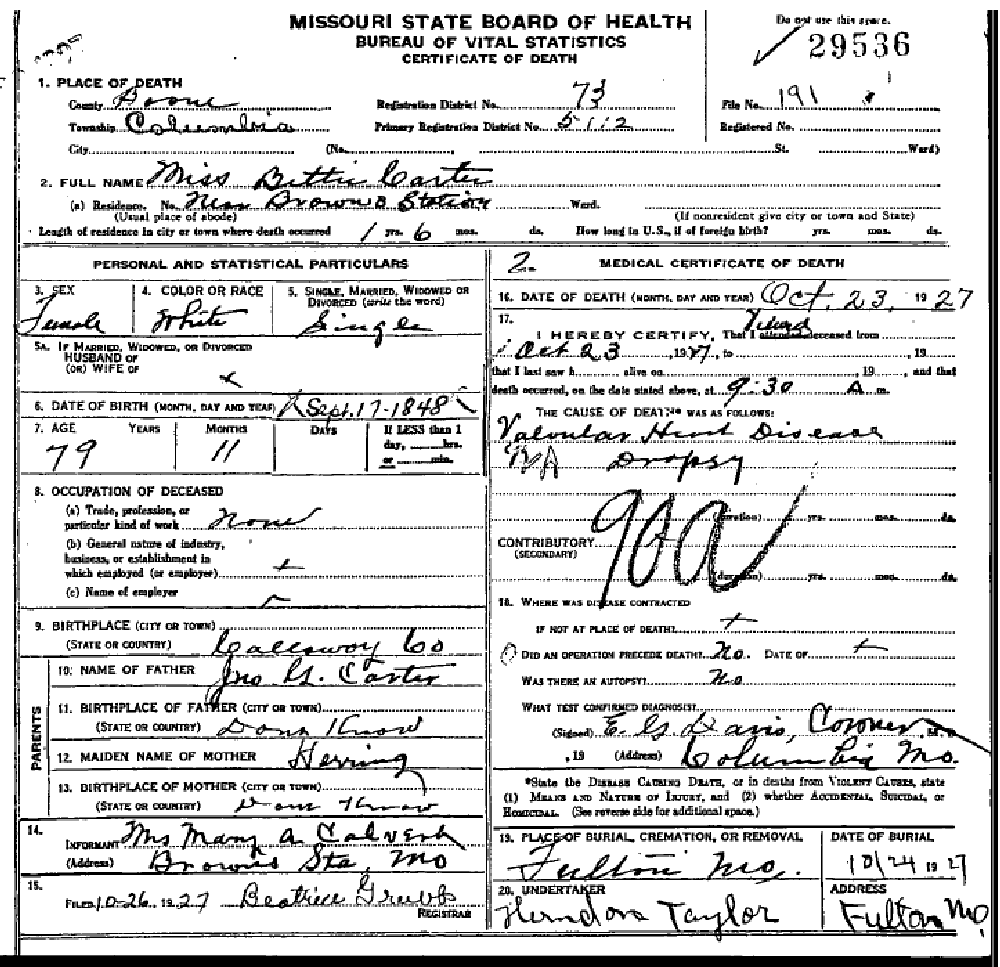 MISSOURI STATE BOARD OF HEALTH
BUREAU OF VITAL STATISTICS
CERTIFICATE OF DEATH
Do not use this space.
29536
1. PLACE OF DEATH
County Boone Registration District No. 73 File No. 191
Township Columbia Primary Registration District No. 5112 Registered No.
City (No. St. Ward)
2. FULL NAME Miss Bettie Carter
(a) Residence. No. Near Browns Station Ward.
(Usual place of abode) (If nonresident give city or town and State)
Length of residence in city or town where death occurred 1 yrs. 6 mos. ds. How long in U.S., if of foreign birth? yrs. mos. ds.
PERSONAL AND STATISTICAL PARTICULARS
3. SEX 4. COLOR OR RACE 5. SINGLE, MARRIED, WIDOWED OR
DIVORCED (write the word)
Female White Single
5A. IF MARRIED, WIDOWED, OR DIVORCED
HUSBAND OF
(OR) WIFE OF x
6. DATE OF BIRTH (MONTH, DAY AND YEAR) Sept. 17-1848
7. AGE YEARS MONTHS DAYS If LESS than 1
day, hrs.
or min.
79 11
8. OCCUPATION OF DECEASED
(a) Trade, profession, or
particular kind of work None
(b) General nature of industry,
business, or establishment in
which employed (or employer)
(c) Name of employer
9. BIRTHPLACE (CITY OR TOWN)
(STATE OR COUNTRY) Callaway Co
PARENTS
10. NAME OF FATHER Jno G. Carter
11. BIRTHPLACE OF FATHER (CITY OR TOWN)
(STATE OR COUNTRY) Dont Know
12. MAIDEN NAME OF MOTHER Herring
13. BIRTHPLACE OF MOTHER (CITY OR TOWN)
(STATE OR COUNTRY) Dont Know
14.
INFORMANT Mrs Mary A Calvert
(Address) Browns Sta, Mo
15.
FILED 10-26 1927 Beatrice Grubbs
REGISTRAR
2. MEDICAL CERTIFICATE OF DEATH
16. DATE OF DEATH (MONTH, DAY AND YEAR) Oct. 23, 1927
17.
Viewed
I HEREBY CERTIFY, That I attended deceased from
Oct 23, 1927, to , 19
that I last saw h alive on , 19 , and that
death occurred, on the date stated above, at 9:30 A m.
THE CAUSE OF DEATH* WAS AS FOLLOWS:
Valvular Heart Disease
Dropsy
90a
(duration) yrs. mos. ds.
CONTRIBUTORY
(SECONDARY)
(duration) yrs. mos. ds.
18. WHERE WAS DISEASE CONTRACTED
IF NOT AT PLACE OF DEATH?
DID AN OPERATION PRECEDE DEATH? No. DATE OF
WAS THERE AN AUTOPSY? No
WHAT TEST CONFIRMED DIAGNOSIS?
(Signed) E. G. Davis, Coroner M.D.
, 19 (Address) Columbia Mo.
*State the DISEASE CAUSING DEATH, or in deaths from VIOLENT CAUSES, state
(1) MEANS AND NATURE OF INJURY, and (2) whether ACCIDENTAL, SUICIDAL, or
HOMICIDAL. (See reverse side for additional space.)
19. PLACE OF BURIAL, CREMATION, OR REMOVAL DATE OF BURIAL
Fulton Mo. 10/24 1927
20. UNDERTAKER ADDRESS
Herndon Taylor Fulton Mo.